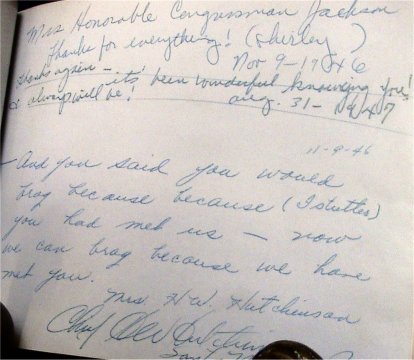 Mrs Honorable Congressman Jackson
Thanks for everything! (Shirley)
Nov 9-1946
Thanks again - it's been wonderful knowing you
& always will be! Aug. 31-1947
11-9-46
- And you said you would
brag because because (I stutter)
you had met us - now
we can brag because we have
met you.
Mrs. H.W. Hutchinson
Chief